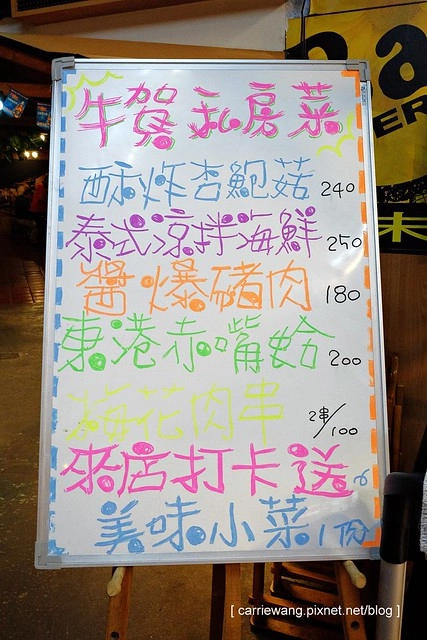 牛賀私房菜
酥炸杏鮑菇 240
泰式涼拌海鮮 250
醬爆豬肉 180
東港赤嘴蛤 200
梅花肉串 2串/100
來店打卡送
美味小菜1份
a
ER
末
[ carriewang.pixnet.net/blog ]